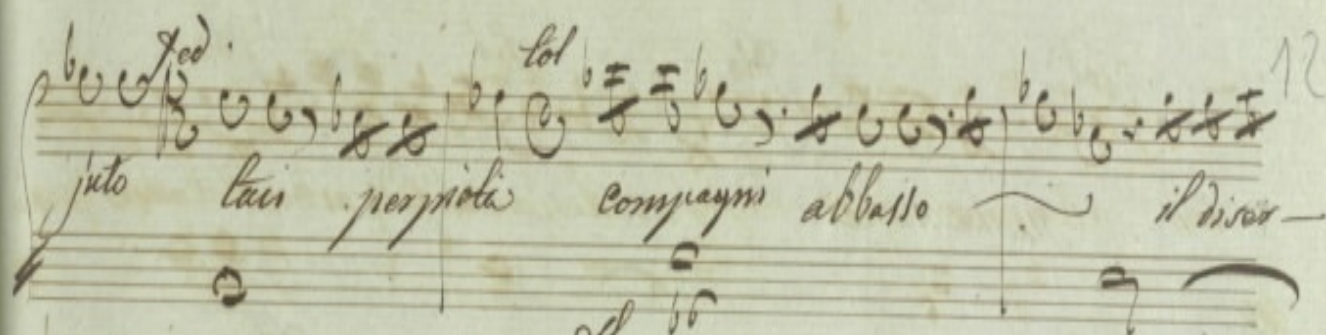 Ted. Col 12
juto taci per pietà compagni abbasso il disar-